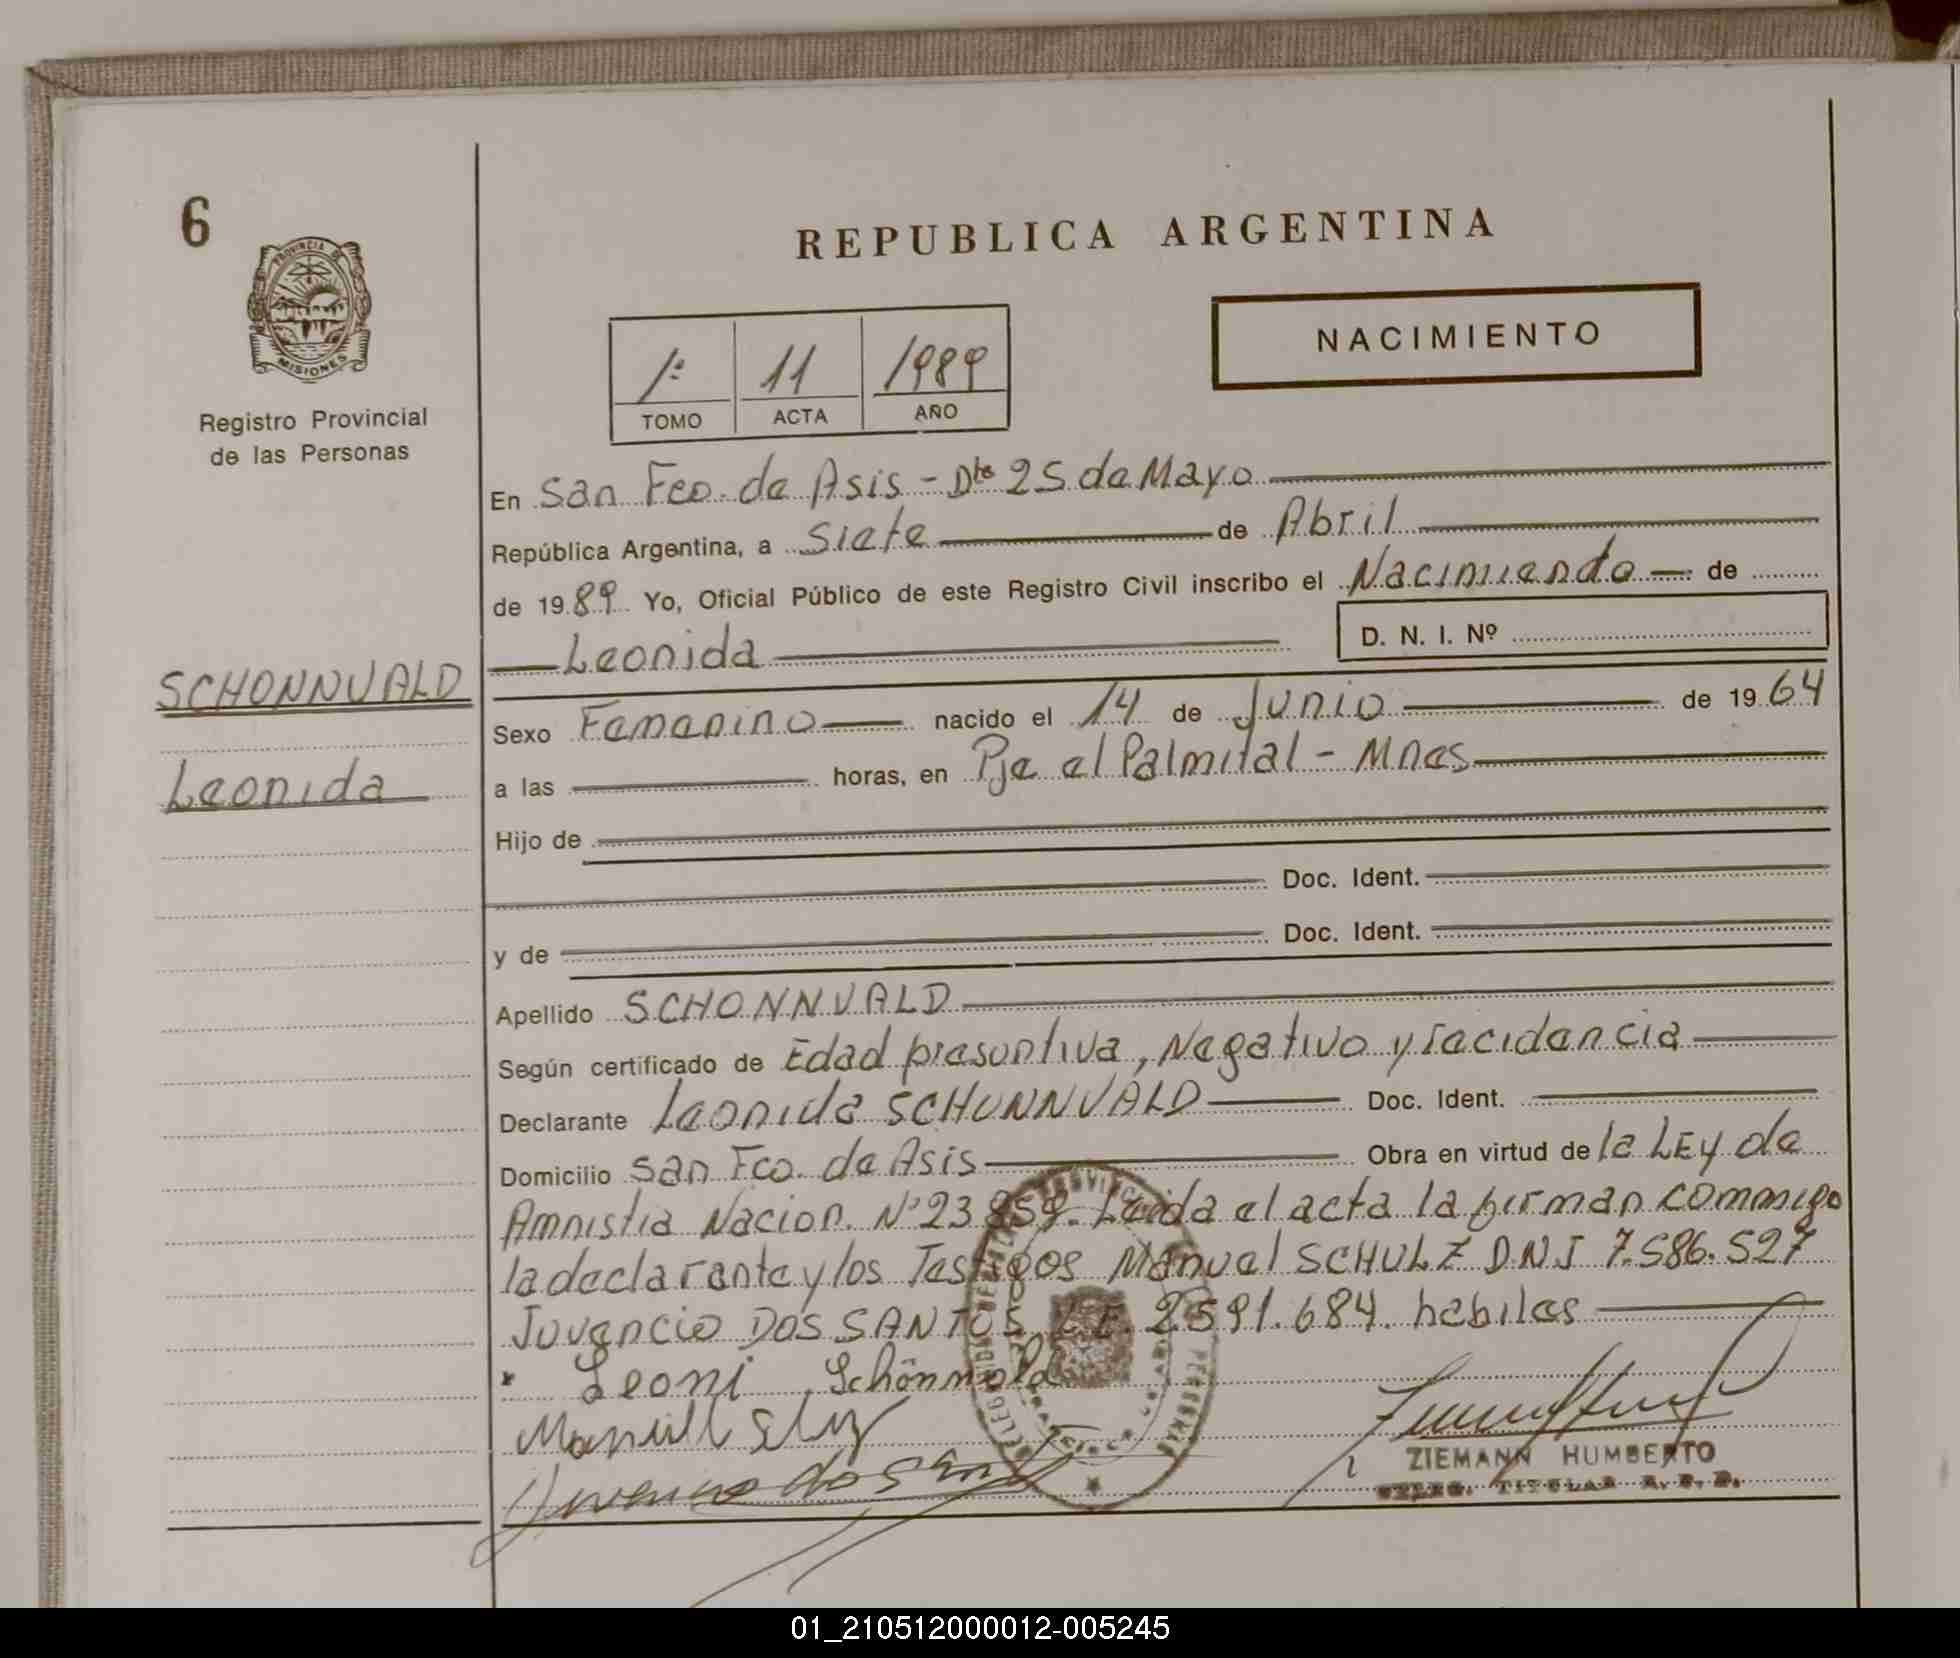 6
PROVINCIA DE
MISIONES
Registro Provincial
de las Personas
SCHONNVALD
Leonida
REPUBLICA ARGENTINA
NACIMIENTO
1º 11 1989
TOMO ACTA AÑO
En San Fco. de Asis - Dto 25 de Mayo
República Argentina, a Siete de Abril
de 1989 Yo, Oficial Público de este Registro Civil inscribo el Nacimiendo de
Leonida D. N. I. Nº
Sexo Femenino nacido el 14 de Junio de 1964
a las horas, en Pje el Palmital - Mnes
Hijo de
Doc. Ident.
y de Doc. Ident.
Apellido SCHONNVALD
Según certificado de Edad presuntiva, Negativo y recidencia
Declarante Leonida SCHONNVALD Doc. Ident.
Domicilio San Fco. de Asis Obra en virtud de la LEY de
Amnistia Nacion. Nº 23859. Leida el acta la firman commigo
la declarante y los Testigos Manuel SCHULZ D.N.I 7.586.527
Juvencio DOS SANTOS L.E. 2591.684. habiles
Leoni Schönnvald
ZIEMANN HUMBERTO
DELEG. TITULAR R. P. P.
01_210512000012-005245